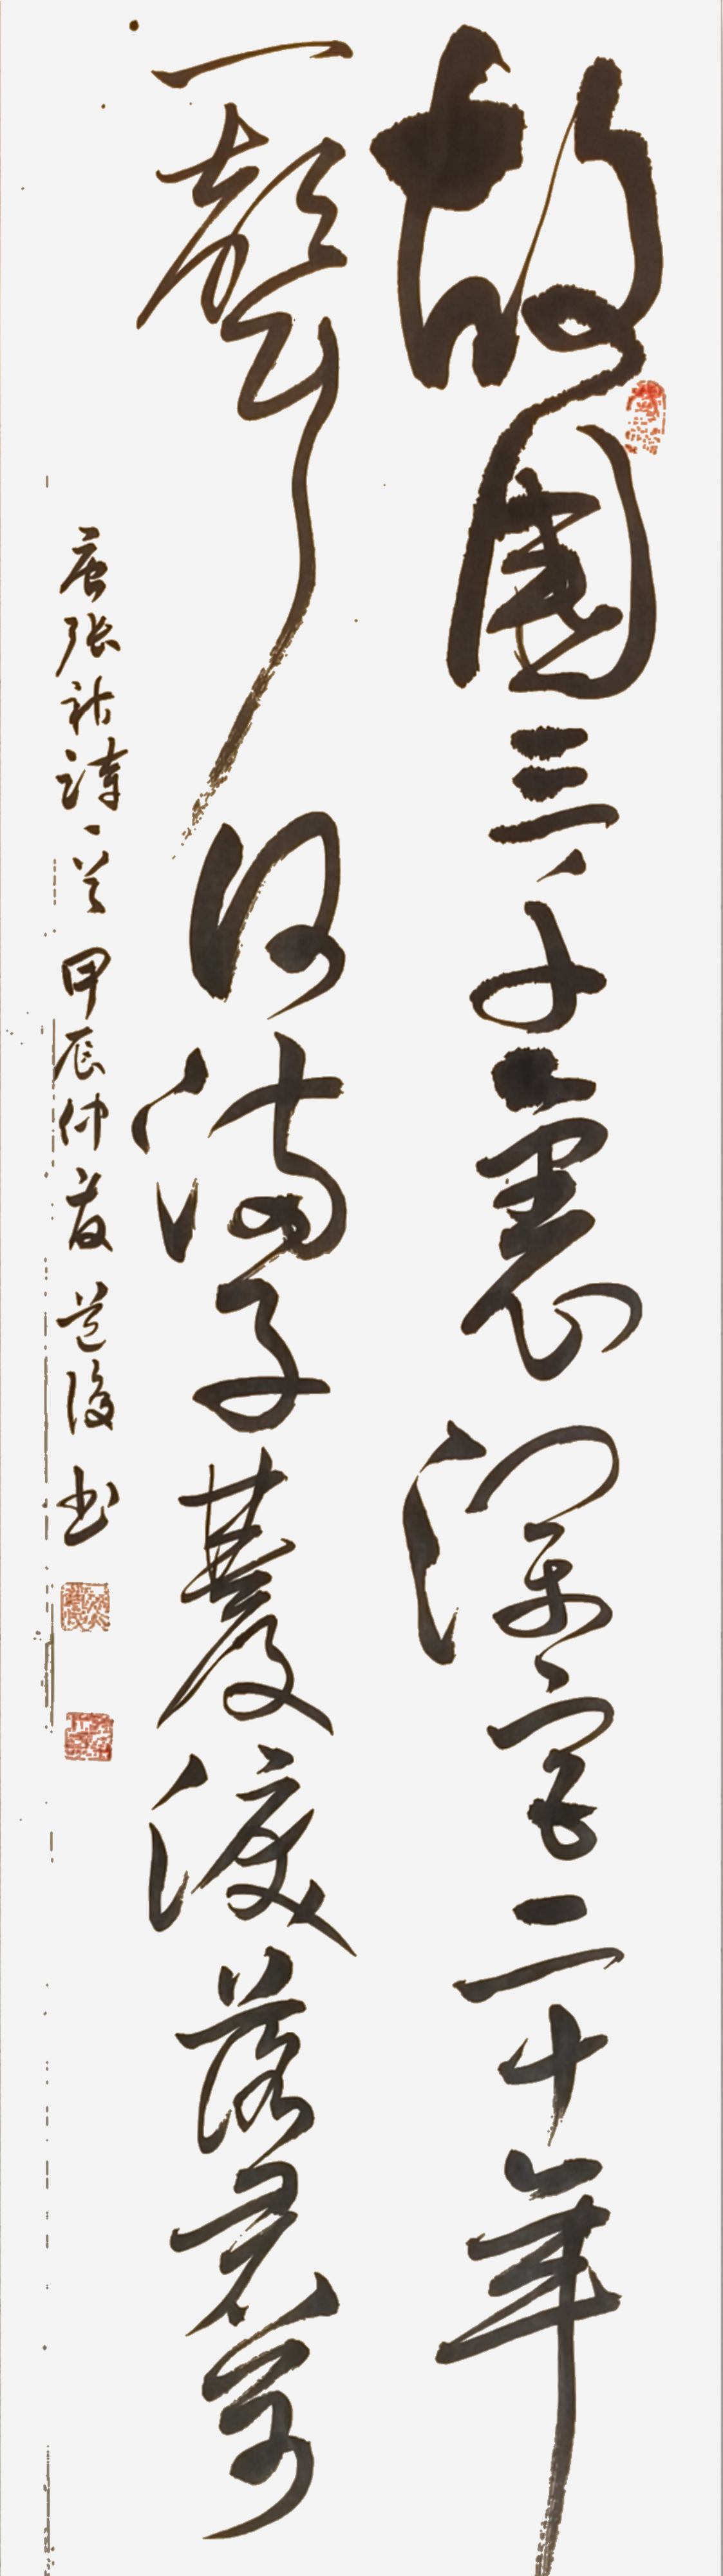 故國三千裏深宮二十年
一聲何滿子雙淚落君前
唐張祜詩一首 甲辰仲夏 书